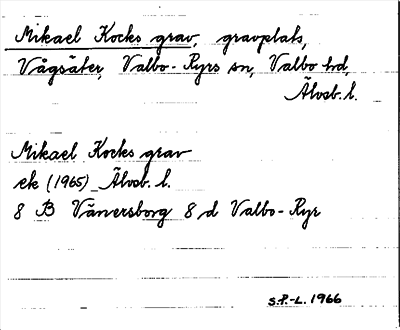 Mikael Kocks grav, gravplats,
Vågsäter, Valbo-Ryrs sn, Valbo hd,
Älvsb. l.
Mikael Kocks grav
ek (1965) Älvsb. l.
8 B Vänersborg 8 d Valbo-Ryr
S.P.-L. 1966